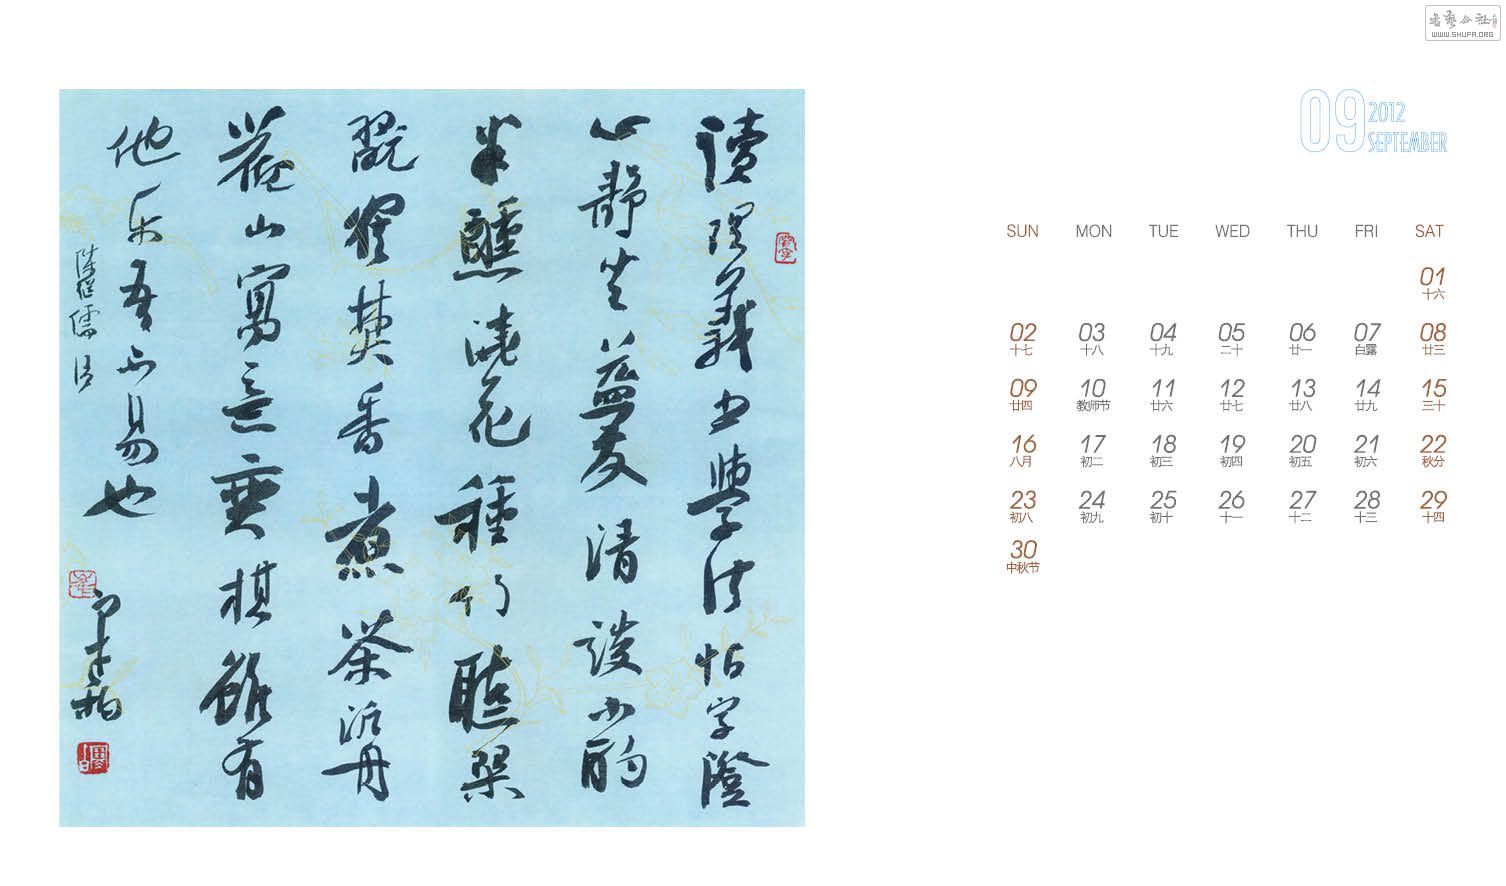 讀理義书學法帖字澄
心静坐益友清談小酌
半醺澆花種竹聽琴
翫鶴焚香煮茶泛舟
觀山寓意弈棋雖有
他乐吾不易也
陳继儒语
WWW.SHUFA.ORG
09 2012
SEPTEMBER
SUN MON TUE WED THU FRI SAT
01
十六
02 03 04 05 06 07 08
十七 十八 十九 二十 廿一 白露 廿三
09 10 11 12 13 14 15
廿四 教师节 廿六 廿七 廿八 廿九 三十
16 17 18 19 20 21 22
八月 初二 初三 初四 初五 初六 秋分
23 24 25 26 27 28 29
初八 初九 初十 十一 十二 十三 十四
30
中秋节